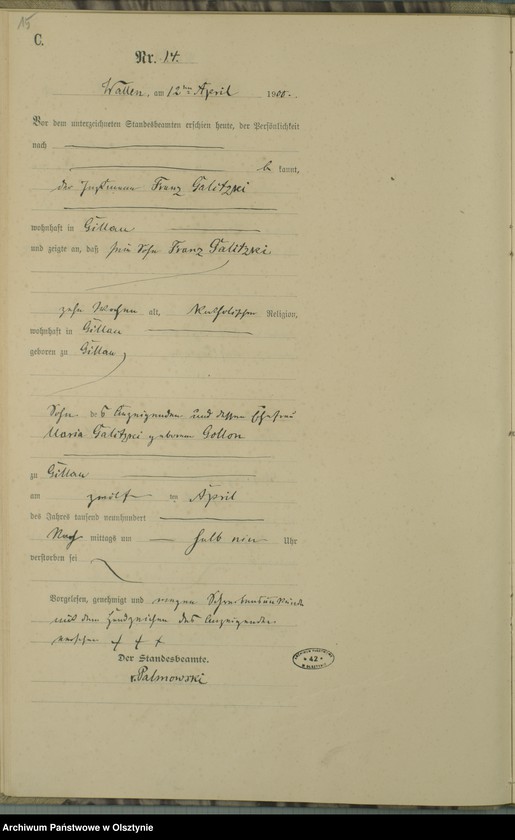 15
C.
Nr. 14.
Wallen, am 12ten April 1900.
Vor dem unterzeichneten Standesbeamten erschien heute, der Persönlichkeit
nach
be kannt,
der Instmann Franz Galitzki
wohnhaft in Gillau
und zeigte an, daß sein Sohn Franz Galitzki
zehn Wochen alt, katholischer Religion,
wohnhaft in Gillau
geboren zu Gillau,
Sohn des Anzeigenden und dessen Ehefrau
Maria Galitzki geborene Gollon
zu Gillau
am zwölften April
des Jahres tausend neunhundert
Nach mittags um halb ein Uhr
verstorben sei
Vorgelesen, genehmigt und wegen Schreibensunkunde
mit dem Handzeichen des Anzeigenden
versehen + + +
Der Standesbeamte.
v. Palmowski
ARCHIWUM PAŃSTWOWE
* 42 *
W OLSZTYNIE
Archiwum Państwowe w Olsztynie